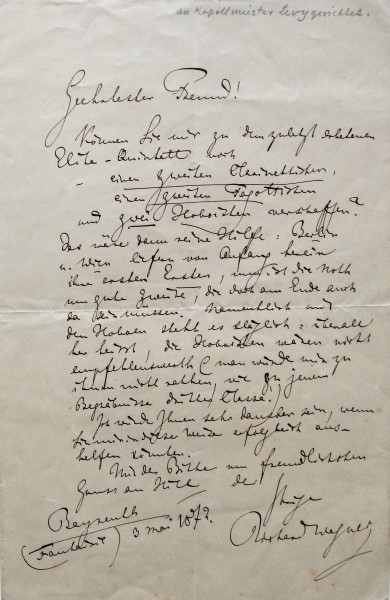 an Kapellmeister Levy gerichtet.
Geehrtester Freund!
Können Sie mir zu dem zuletzt erbetenen
Elite-Quintett noch
- einen zweiten Clarinettisten,
einen zweiten Fagottisten
und zwei Hoboisten verschaffen?
Das wäre denn seine Hülfe: Berlin
u. Wien liefen von Anfang herein
ihre ersten Ersten, nun ist die Noth
um gute Zweite, die doch am Ende auch
da sein müssen. Namentlich mit
den Hoboen steht es kläglich: überall
her heisst, die Hoboisten wären nicht
empfehlenswerth (man würde mir zu
ihnen nicht rathen, wie zu jenem
Begräbnisse dritter Classe!)
Ich würde Ihnen sehr dankbar sein, wenn
Sie mir in dieser Weise erfolgreich aus-
helfen könnten.
Mit der Bitte um freundlichsten
Gruss an Hill der
Ihrige
Bayreuth
(Fantaisie) 3 Mai 1872.
Richard Wagner